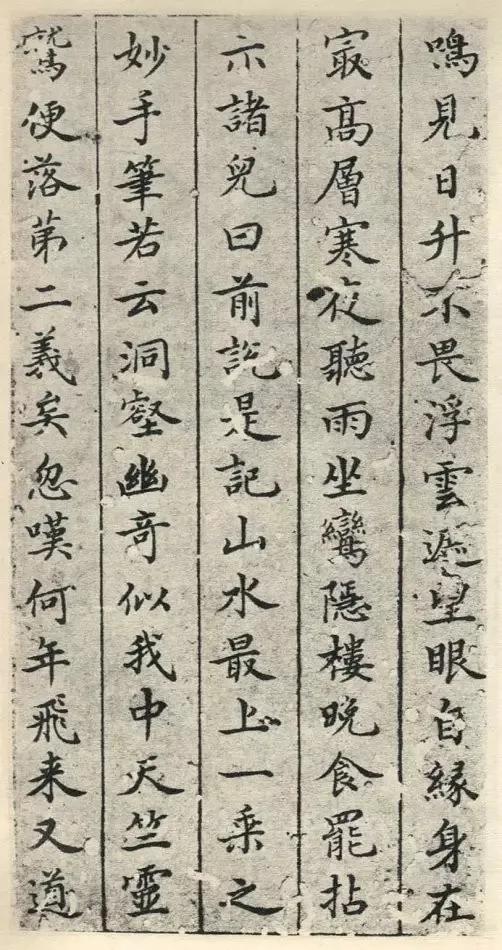 鳴見日升不畏浮雲遮望眼自緣身在
㝡高層寒夜聽雨坐鸞隱樓晚食罷拈
示諸兒曰前說是記山水最上一乘之
妙手筆若云洞壑幽奇似我中天竺靈
鷲便落第二義矣忽嘆何年飛来又道